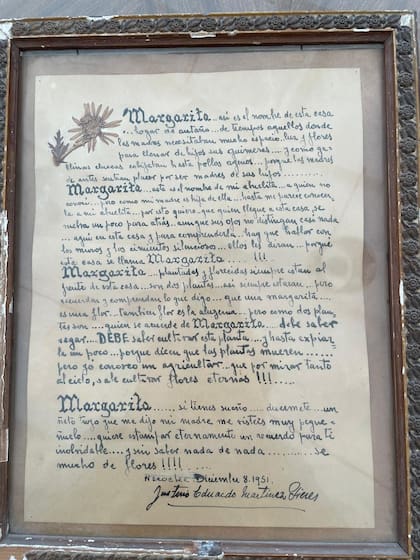 Margarita.... así es el nombre de esta casa
... hogar de antaño... de tiempos aquellos donde
las madres necesitaban mucho espacio, luz y flores
para llenar de hijos sus quimeras.... y como ga-
llinas cluecas cobijaban hasta pollos ajenos... porque las madres
de antes sentían placer por ser madres de sus hijos..........
Margarita.... este es el nombre de mi abuelita... a quien no
conocí... pero como mi madre es hija de ella... hasta me parece conocer-
la a mi abuelita... por esto quiero, que quien llegue a esta casa, se
meta un poco para atrás, aunque sus ojos no distingan casi nada
... aquí en esta casa y para comprenderla.. hay que hablar con
los muros y los cimientos silenciosos... ellos les diran... porqué
esta casa se llama Margarita........ !!!
Margarita.... plantadas y florecidas siempre están al
frente de esta casa... son dos plantas... así siempre estarán... pero
recuerdan y comprendan lo que digo... que una margarita....
es una flor... tambien flor es la azucena... pero como dos plan-
tas son.... quien se acuerde de Margarita.... debe saber
regar... DEBE saber cultivar esta planta.... y hasta expiar-
la un poco... porque dicen que las plantas mueren....
pero yo conozco un agricultor que por mirar tanto
al cielo, sabe cultivar flores eternas !!!.....
Margarita..... si tienes sueño.... duermete... un
nieto tuyo que me dijo mi madre me visteis muy peque-
ñuelo.... quiere estampar eternamente un recuerdo para ti
inolvidable.... y sin saber nada de nada....... se
mucho de flores !!!! .....
Necochea Diciembre 8. 1951.
Justino Eduardo Martinez